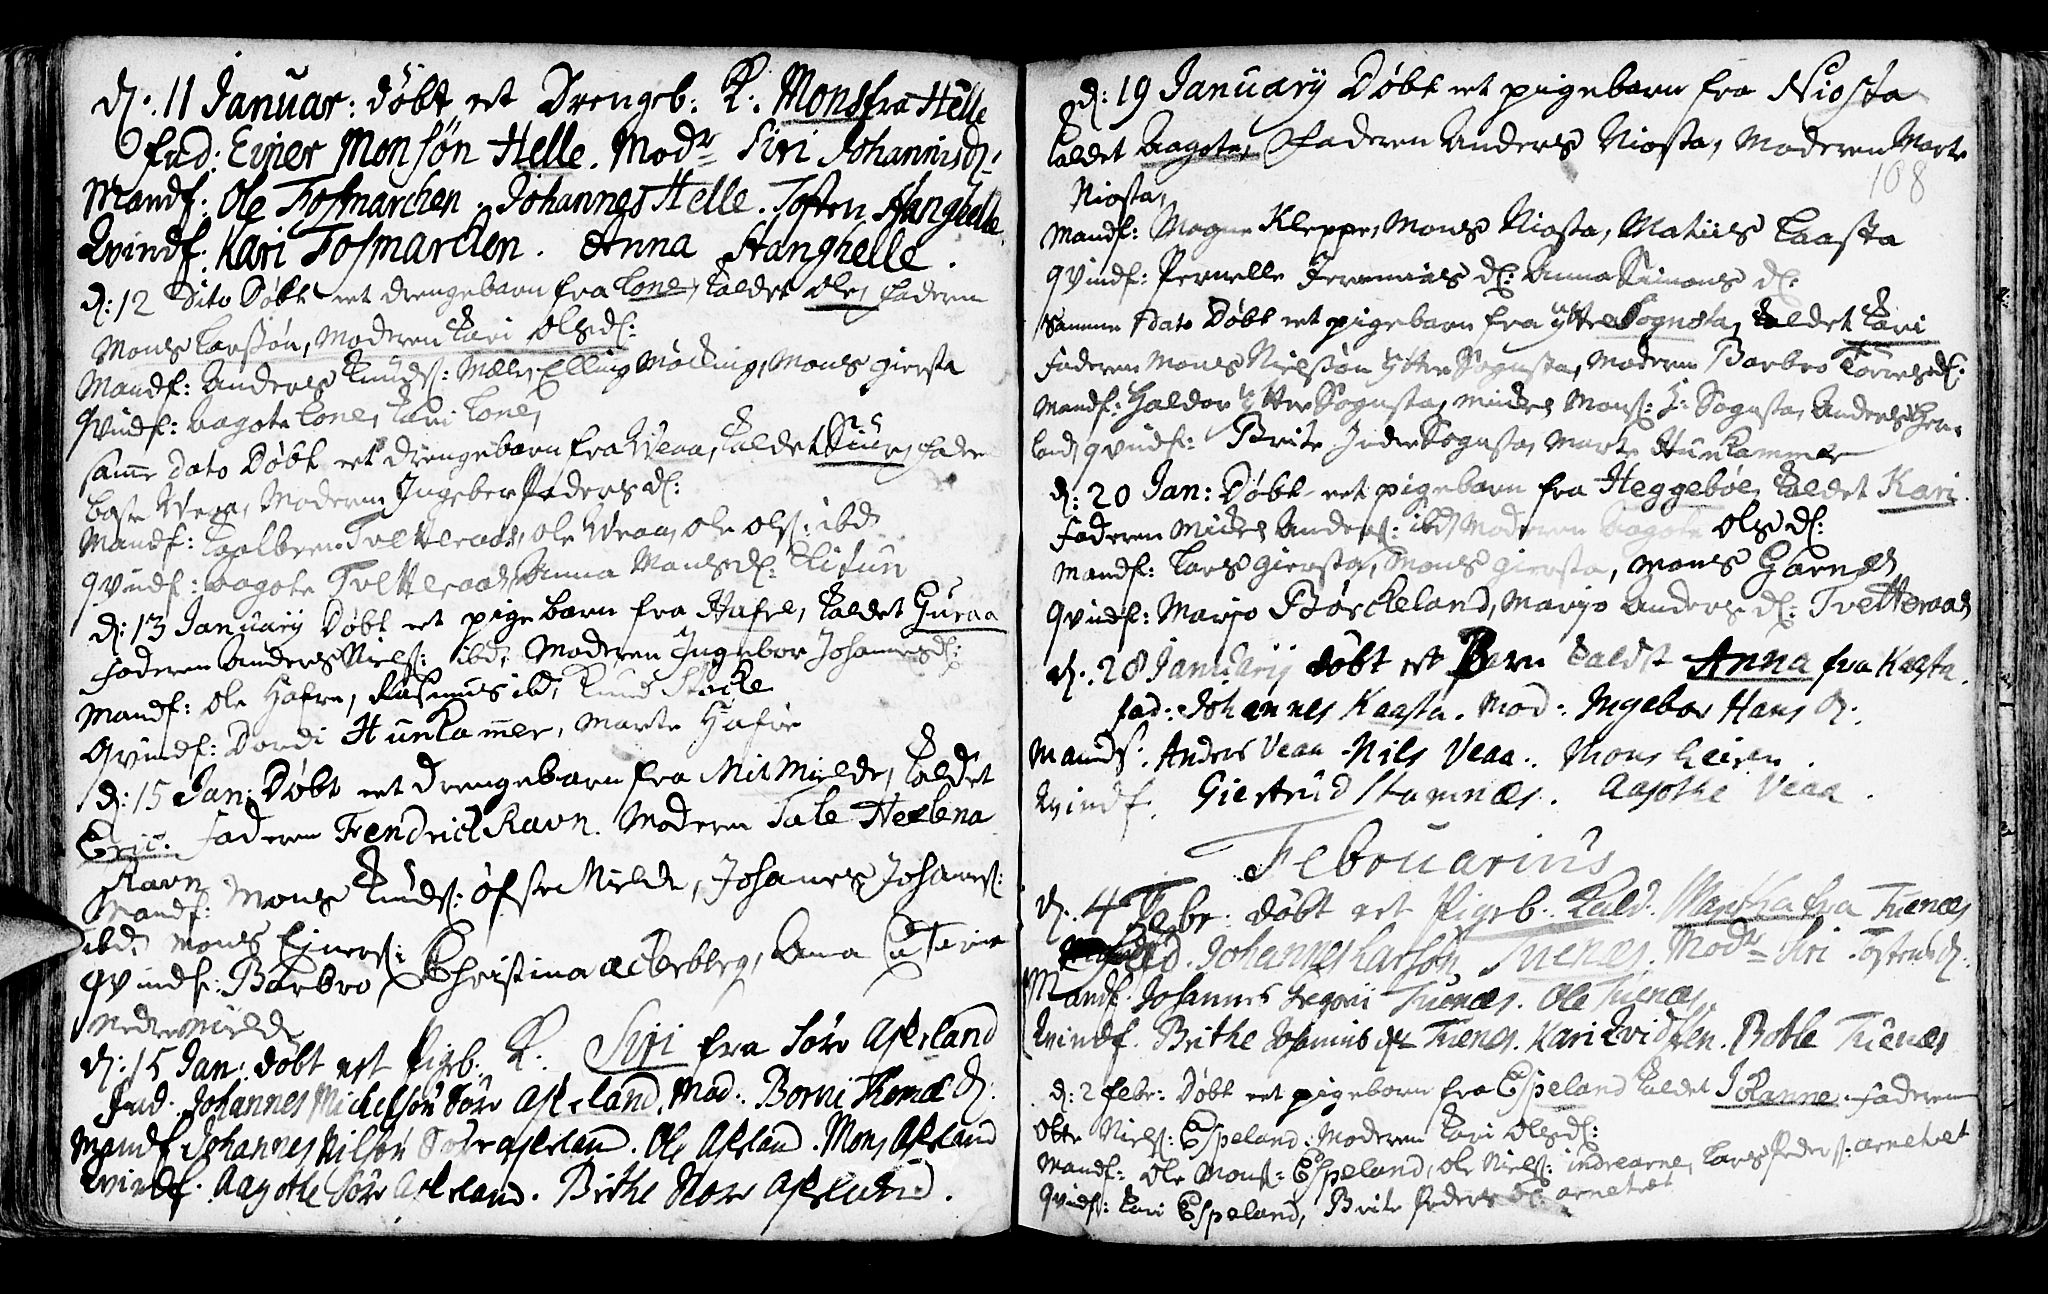 d. 11 Januar: døbt et Drengeb: K: Mons fra Helle
fad: Einer Monsøn Helle. Modr Siri Johannisd:
Mandf: Ole Tofmarchen. Johannes Helle. Tosten Stanghelle
Qvindf: Kari Tofmarchen. Anna Stanghelle.
d: 12 Dito Døbt et drengebarn fra Lone, kaldet Ole, faderen
Mons Larssøn, Moderen Kari Olsd:
Mandf: Anders Knuds: Mæle, Elling Møcking, Mons giersta
Qvindf: Aagote Lone, Kari Lone,
samme dato Døbt et drengebarn fra Weaa, kaldet Siur, fader
Moderen Ingebor Pedersd:
Mandf: Tvetteraas, Ole Weaa, Ole Ols: ibd
qvindf: Aagote Tvetteraas Anna Monsd:
d: 13 January Døbt et pigebarn fra Hafre, kaldet Guraa
Faderen Anders Niels: ibd, Moderen Ingebor Johannesd:
Mandf: Ole Hafre, Rasmus ibd, Knud Stocke
Qvindf: Dordi Hunkammer, Marte Hafre
d: 15 Jan: Døbt et drengebarn fra Mitmielde, kaldet
Eric. Faderen Frendrick Ravn. Moderen Tale Helena
Ravn
Mandf: Mons Knuds: øfste Mielde, Johannes Johannes:
ibd. Mons Einers:
qvindf: Barbro, Christina Ackerberg, Anna Catarine
Nedre Mielde
d: 15 Jan: døbt et Pigeb: K. Siri fra Søre Askeland
fad. Johannes Michelsøn Søre Askeland. Mod. Borni Thomæ d.
Mandf. Johannes Nilsøn Søre Askeland. Ole Askland. Mons Askland
Qvindf. Aagothe Søre Askeland. Birthe Store Askeland.
d: 19 January Døbt et pigebarn fra Niosta
kaldet Aagote, Faderen Anders Niosta, Moderen Marte
108
Niosta,
Mandf: Magne Kleppe, Mons Niosta, Matiis Kaasta
qvindf: Pernelle Jeremias d: Anna Simons d:
Samme dato Døbt et pigebarn fra ytre Sognsta, kaldet Kari
Faderen Mons Nielssøn ytre Sognsta, Moderen Barbro Torresd:
Mandf: Haldor ytre Sognsta, Michel Mons: J: Sognsta, Anders
land, qvindf: Brite Indre Sognsta, Marte Hunkammer
d: 20 Jan: Døbt et pigebarn fra Heggebøe, kaldet Kari
Faderen Michel Anders: ibd, Moderen Aagote Olsd:
Mandf: Lars giersta, Mons giersta, Mons Garnes
Qvindf: Marjo Børckeland, Marjo Anders d: Tvetteraas
d. 28 January døbt et Barn kaldet Anna fra Kaasta.
fad: Johannes Kaasta. Mod: Ingebor Hans d.
Mandf: Anders Veaa. Nils Veaa. Mons Leiren.
Qvindf. Giertrud Stamnæs. Aagothe Veaa.
Februarius
d. 4 Febr: døbt et Pigeb. Kald. Martha fra Tuenæs
fad. Johannes Larsøn Tuenæs. Modr Siri Tostensd.
Mandf. Johannes Gregorii Tuenæs. Ole Tuenæs.
Qvindf. Birthe Johannis d. Tuenæs. Kari Qvidsten. Botle Tuenæs
d: 2 Febr: Døbt et pigebarn fra Espeland kaldet Johanne. Faderen
Otte Niels: Espeland. Moderen Kari Olsd:
Mandf: Ole Mons: Espeland, Ole Niels: indrearne, Lars Peders: arnetvet
qvindf: Kari Espeland, Brite Peders d: arnetvet